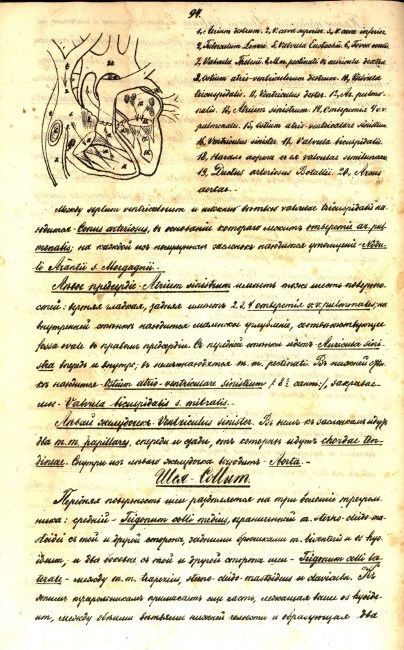 94.
1, Atrium dextrum. 2, V. cava superior. 3, V. cava inferior.
4, Tuberculum Loweri. 5, Valvula Eustachii. 6, Fovea ovalis
7, Valvula Thebesii. 8, M.m. pectinati в auricula dextra
9, Ostium atrio-ventriculorum dextrum. 10, Valvula
tricuspidalis. 11, Ventriculus dexter. 12, Ar. pulmo-
nalis. 13, Atrium sinistrum. 14, Отверстiя v.v.
pulmonales. 15, Ostium atrio-ventriculare sinistrum
16, Ventriculus sinister. 17, Valvula bicuspidalis.
18, Начало аорты съ ея valvulae semilunares
19, Ductus arteriosus Botallii. 20, Arcus
aortae.
Между septum ventriculorum и нижнею вѣтвью valvulae tricuspidalis на-
ходится Conus arteriosus, въ основанiи котораго лежитъ отверстiе ar. pul-
monalis; на каждой изъ полулунныхъ заслонокъ находится утолщенiе - Nodu-
li Arantii s. Morgagnii.
Лѣвое предсердiе - Atrium sinistrum имѣетъ тоже шесть поверхно-
стей: верхняя гладкая, задняя имѣетъ 2 и 4 отверстiя v.v. pulmonales; на
внутренней стѣнкѣ находится маленькое углубленiе, соотвѣтствующее
fossa ovale въ правомъ предсердiи. Съ передней стѣнки идетъ Auricula sini-
stra впередъ и внутрь; въ немъ находятся m.m. pectinati. Въ нижней стѣн-
кѣ находится Ostium atrio-ventriculare sinistrum ( 8½ сант.), закрывае-
мое Valvula bicuspidalis s. mitralis.
Лѣвый желудочекъ - Ventriculus sinister. Въ немъ къ заслонкамъ идутъ
два m.m. papillares, спереди и сзади, отъ которыхъ идутъ chordae ten-
dineae. Внутри изъ лѣваго желудочка выходитъ Aorta.
Шея - Collum.
Передняя поверхность шеи раздѣляется на три большiе треуголь-
ника: среднiй - Trigonum colli medius, ограниченный m. sterno-cleido-ma-
stoidei съ той и другой стороны, задними брюшками m. biventris и os hy-
oideum, и два боковые съ той и другой стороны шеи - Trigonum colli la-
terale - между m. trapezius, sterno-cleido-mastoideus и clavicula. Къ
этимъ треугольникамъ примыкаетъ еще часть, лежащая выше os hyoide-
um, между обѣими вѣтвями нижней челюсти и образующая два